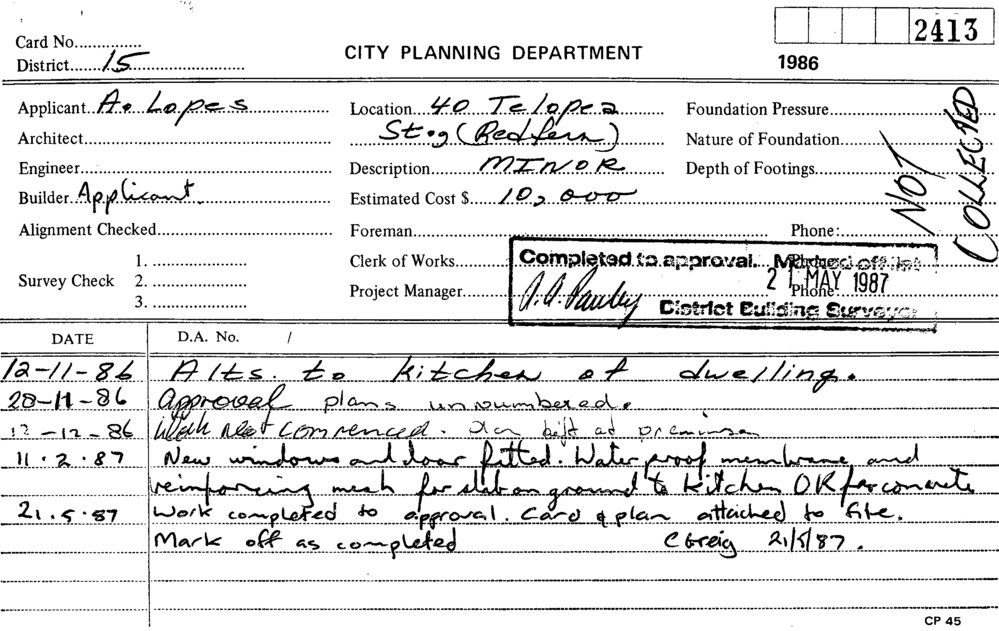 2413
Card No...............
CITY PLANNING DEPARTMENT
District......15..............................
1986
Applicant A. Lopes
Location 40 Telopea
Foundation Pressure
Architect
St., (Redfern)
Nature of Foundation
Engineer
Description MINOR
Depth of Footings
NOT COLLECTED
Builder Applicant.
Estimated Cost $ 10,000
Alignment Checked
Foreman
Phone:
Survey Check
1.
2.
3.
Clerk of Works
Phone:
Project Manager
Phone:
Completed to approval. Marked off list
21 MAY 1987
District Building Surveyor
DATE
D.A. No. /
12-11-86 Alts. to kitchen of dwelling.
28-11-86 Approval plans unnumbered.
12-12-86 Work not commenced. Plan left at premises
11.2.87 New windows and door fitted. Water proof membrane and
reinforcing mesh for slab on ground to kitchen OK for concrete
21.5.87 Work completed to approval. Card & plan attached to file.
Mark off as completed C Greig 21/5/87.
CP 45